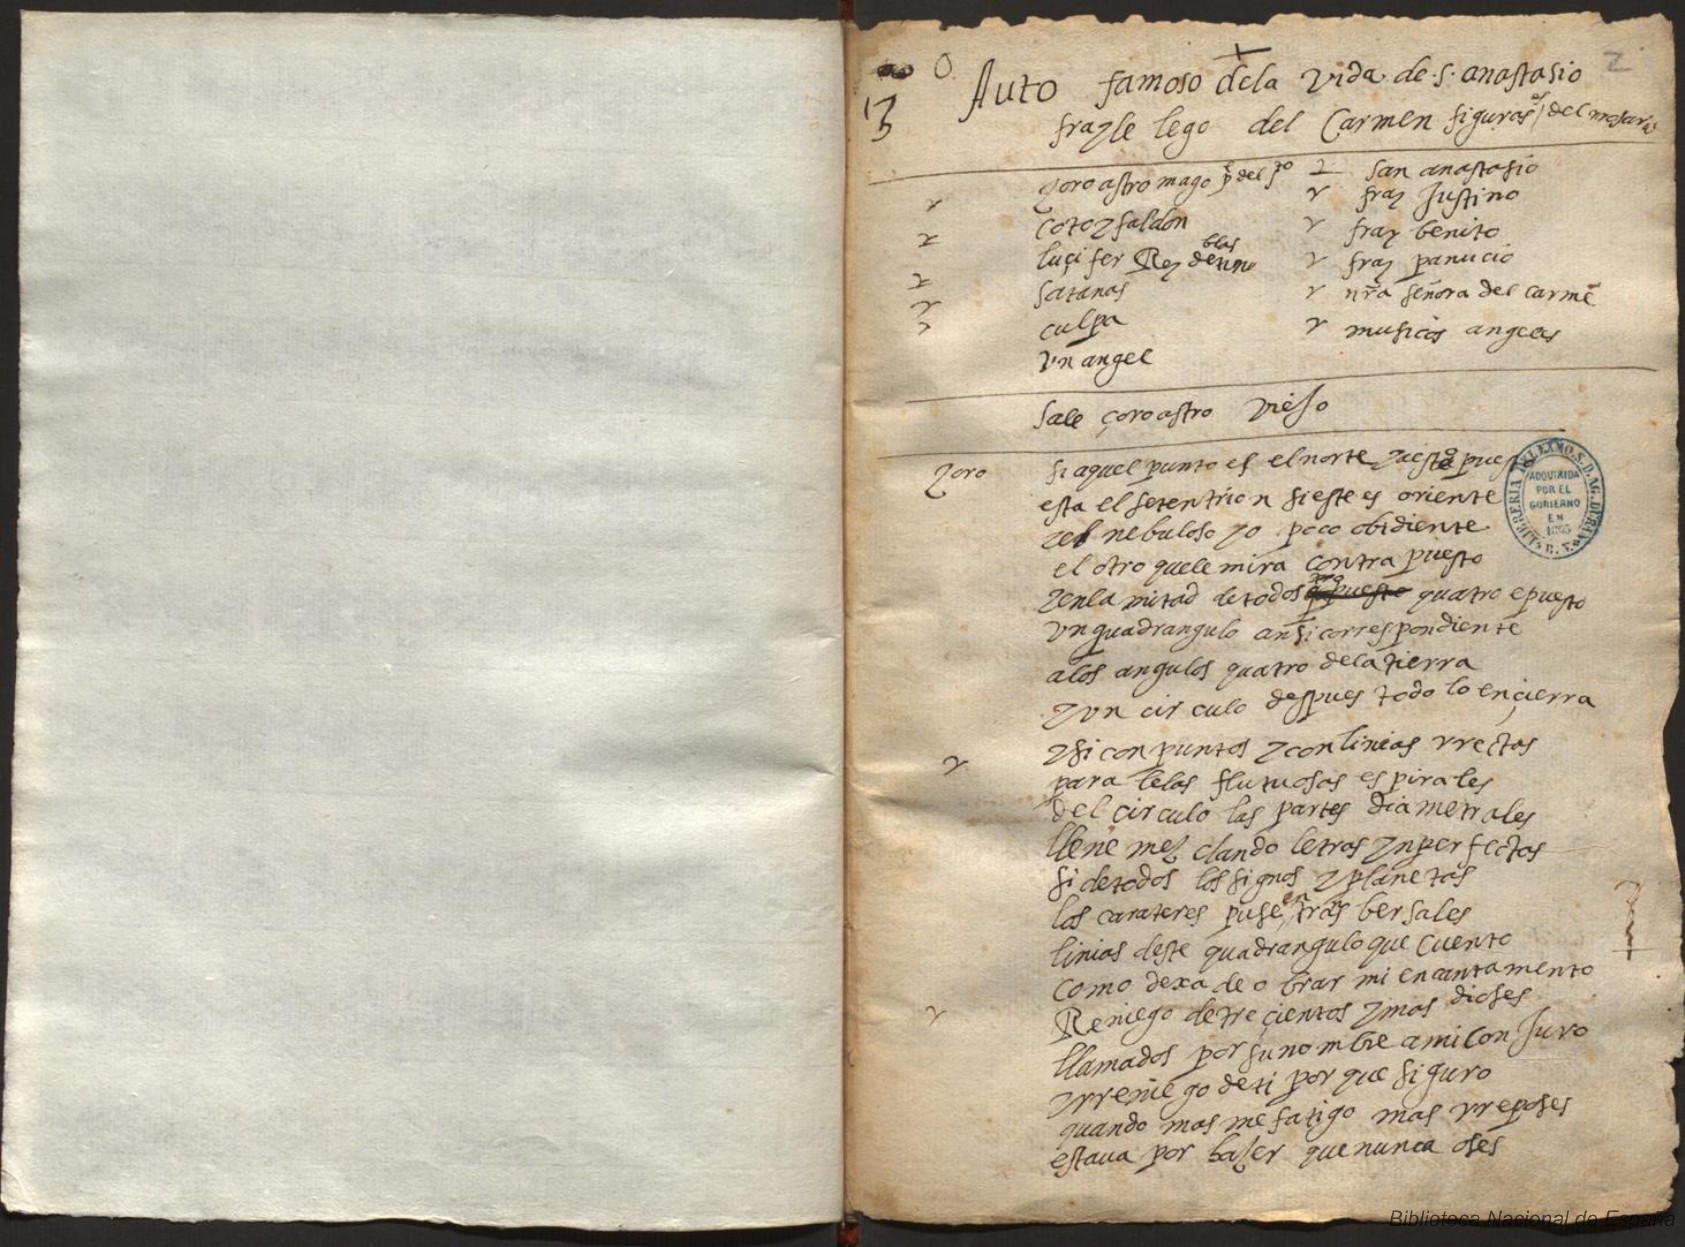 2
13
Auto famoso dela vida de s. anastasio
frayle lego del Carmen figuras del
zoroastro mago p̄ del sto
coto y faldon
luçifer Rey de tinieblas
satanas
culpa
vn angel
san anastasio
fray Justino
fray benito
fray panucio
nr̄a señora del carmē
musicos angeles
sale çoroastro viejo
zoro
si aquel punto es el norte y aesta pues
esta el setentrion si este es oriente
y el nebuloso yo poco obidiente
el otro que le mira contra puesto
y en la mitad de todos quatro e puesto
vn quadrangulo ansi correspondiente
a los angulos quatro de la tierra
y vn circulo despues todo lo ençierra
y si con puntos y con linias rrectas
paralelas flutuosas espirales
del circulo las partes diametrales
llene mezclando letras ynperfectas
si de todos los signos y planetas
los carateres puse en trasbersales
linias deste quadrangulo que cuento
como dexa de obrar mi encantamento
Reniego de treçientos y mas dioses
llamados por su nombre a mi conJuro
y rreniego de ti por que siguro
quando mas me fatigo mas rreposes
estaua por hazer que nunca oses
LIBRERIA DEL EXMO. S. D. AG. DURAN
ADQUIRIDA
POR EL
GOBIERNO
EN
1863
B. N.
Biblioteca Nacional de España